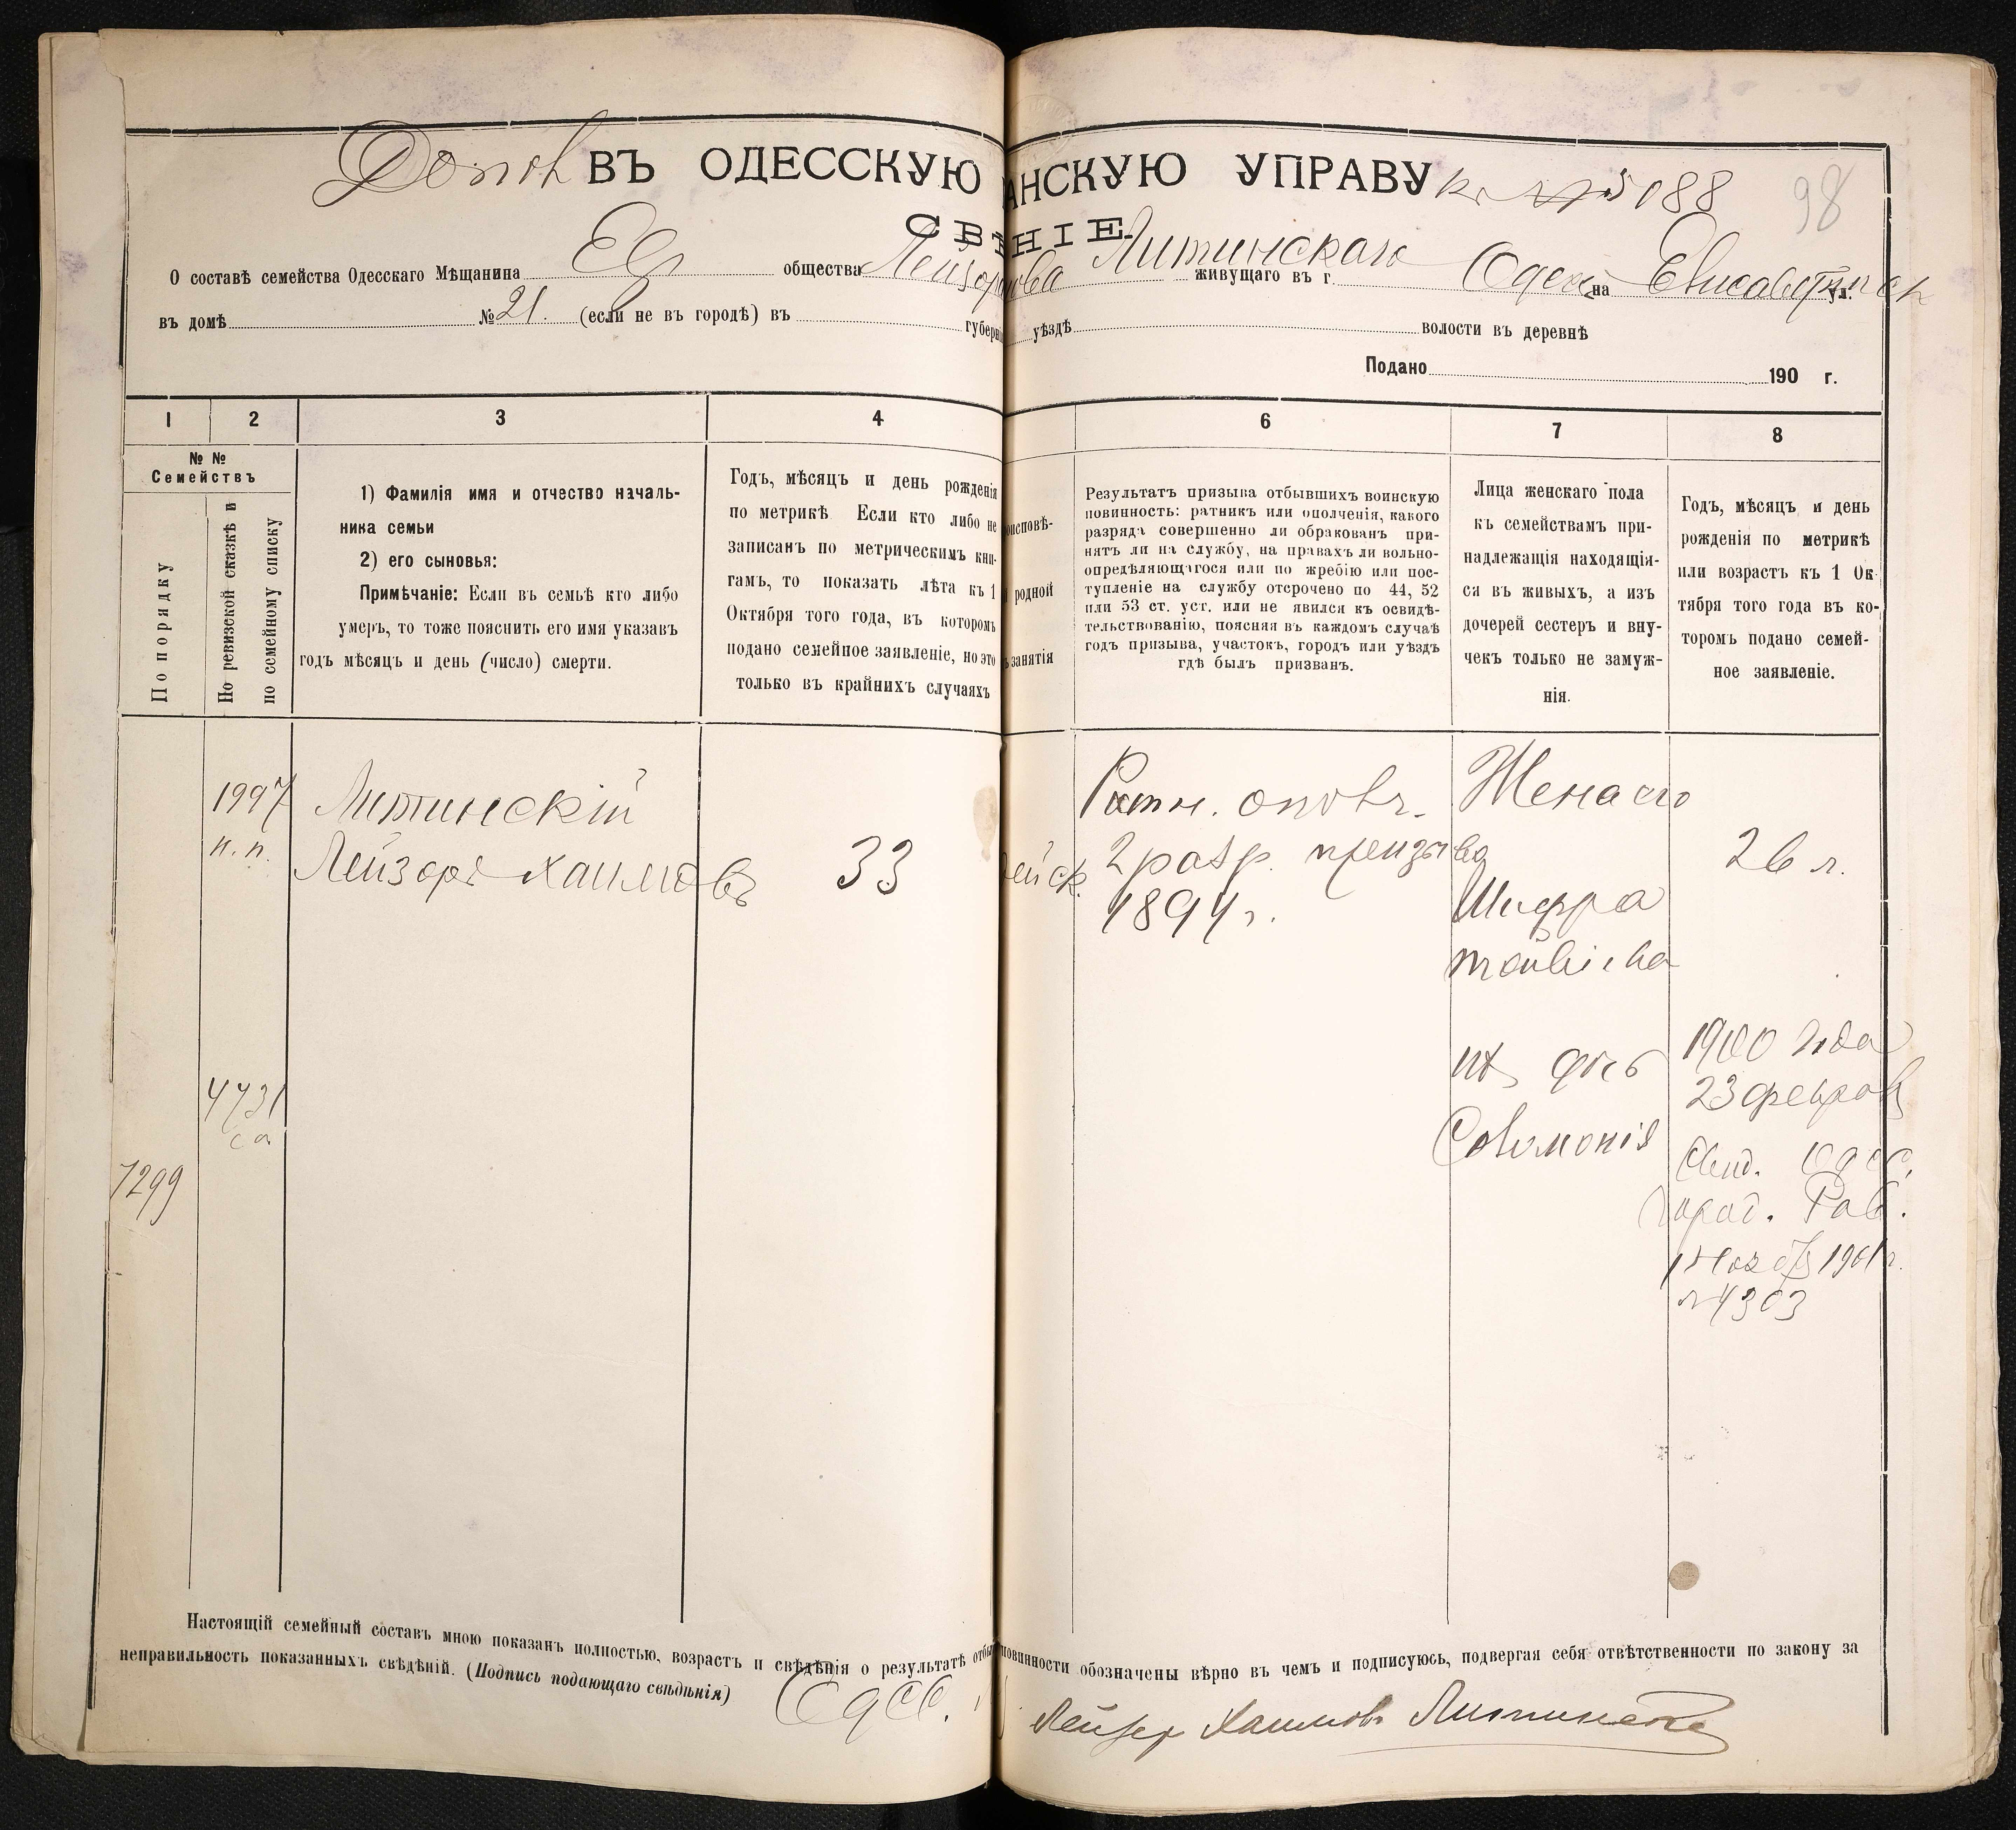 Допол ВЪ ОДЕССКУЮ АНСКУЮ УПРАВУ к № 5088
98
СВѢ НІЕ
О составѣ семейства Одесскаго Мѣщанина Ев общества Лейзора Хаимова Литинскаго живущаго въ г. Одессѣ на Елисаветинск ул.
въ домѣ № 21. (если не въ городѣ) въ губерні уѣздѣ волости въ деревнѣ
Подано 190 г.
1 2 3 4 6 7 8
№ №
Семействъ
По порядку
По ревизской сказкѣ и
по семейному списку
1) Фамилія имя и отчество началь-
ника семьи
2) его сыновья:
Примѣчаніе: Если въ семьѣ кто либо
умеръ, то тоже пояснить его имя указавъ
годъ мѣсяцъ и день (число) смерти.
Годъ, мѣсяцъ и день рожденія
по метрикѣ Если кто либо не
записанъ по метрическимъ кни-
гамъ, то показать лѣта къ 1
Октября того года, въ которомъ
подано семейное заявленіе, но это
только въ крайнихъ случаяхъ
оисповѣ-
родной
занятія
Результатъ призыва отбывшихъ воинскую
повинность: ратникъ или ополченія, какого
разряда совершенно ли обракованъ при-
нятъ ли на службу, на правахъ ли вольно-
опредѣляющагося или по жребію или пос-
тупленіе на службу отсрочено по 44, 52
или 53 ст. уст. или не явился къ освидѣ-
тельствованію, поясняя въ каждомъ случаѣ
годъ призыва, участокъ, городъ или уѣздъ
гдѣ былъ призванъ.
Лица женскаго пола
къ семействамъ при-
надлежащія находящія-
ся въ живыхъ, а изъ
дочерей сестеръ и вну-
чекъ только не замуж-
нія.
Годъ, мѣсяцъ и день
рожденія по метрикѣ
или возрастъ къ 1 Ок-
тября того года въ ко-
торомъ подано семей-
ное заявленіе.
1997
п. п.
Литинскій
Лейзоръ Хаимовъ
33
ейск.
Ратн. ополч.
2 разр. призыва
1894 г.
Жена его
Шифра
26 л.
4731
7299
их дочь
Соломонія
1900 года
23 феврал
Свид. Одес.
Город. Рав.
1901 г.
№ 4303
Настоящій семейный составъ мною показанъ полностью, возрастъ и свѣдѣнія о результатѣ отбы повинности обозначены вѣрно въ чемъ и подписуюсь, подвергая себя отвѣтственности по закону за
неправильность показанныхъ свѣдѣній. (Подпись подающаго свѣдѣнія)
Лейзер Хаимовъ Литинскій